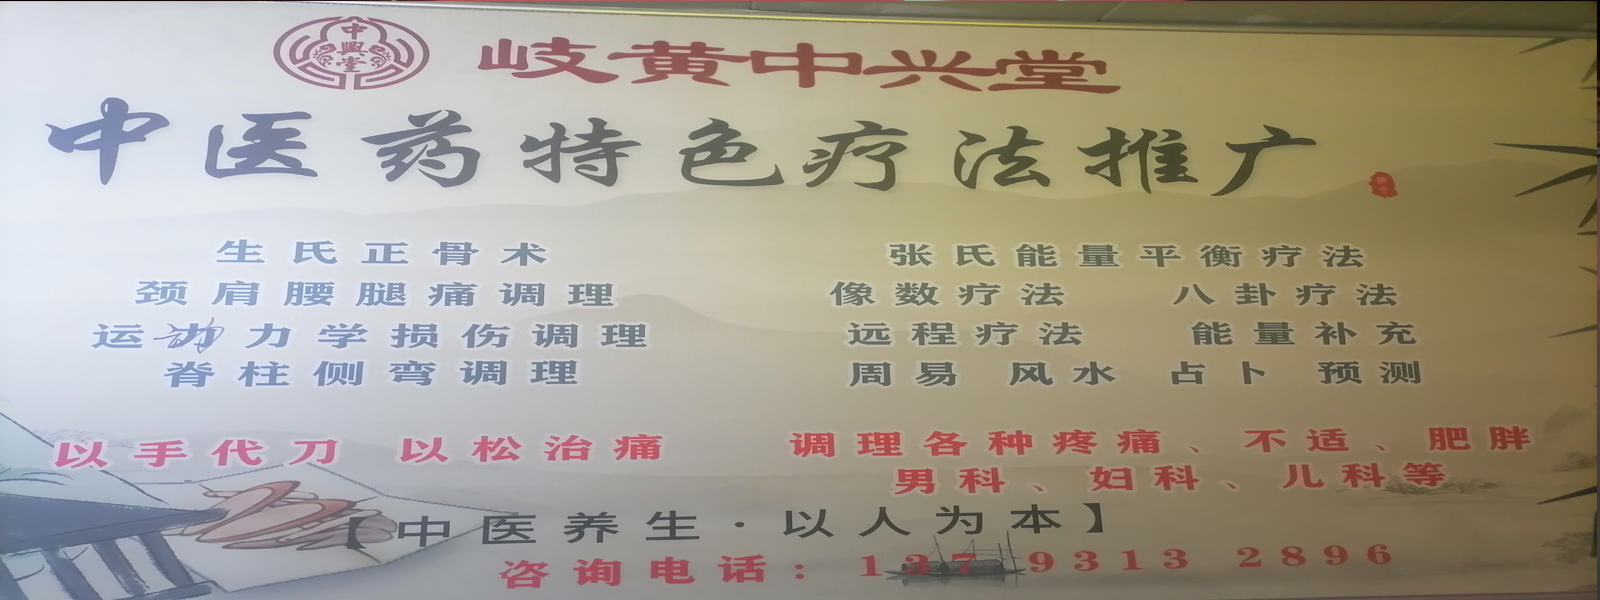 中興堂
岐黄中兴堂
中医药特色疗法推广
生氏正骨术
颈肩腰腿痛调理
运动力学损伤调理
脊柱侧弯调理
张氏能量平衡疗法
像数疗法 八卦疗法
远程疗法 能量补充
周易 风水 占卜 预测
以手代刀 以松治痛
调理各种疼痛、不适、肥胖
男科、妇科、儿科等
【中医养生·以人为本】
咨询电话：137 9313 2896